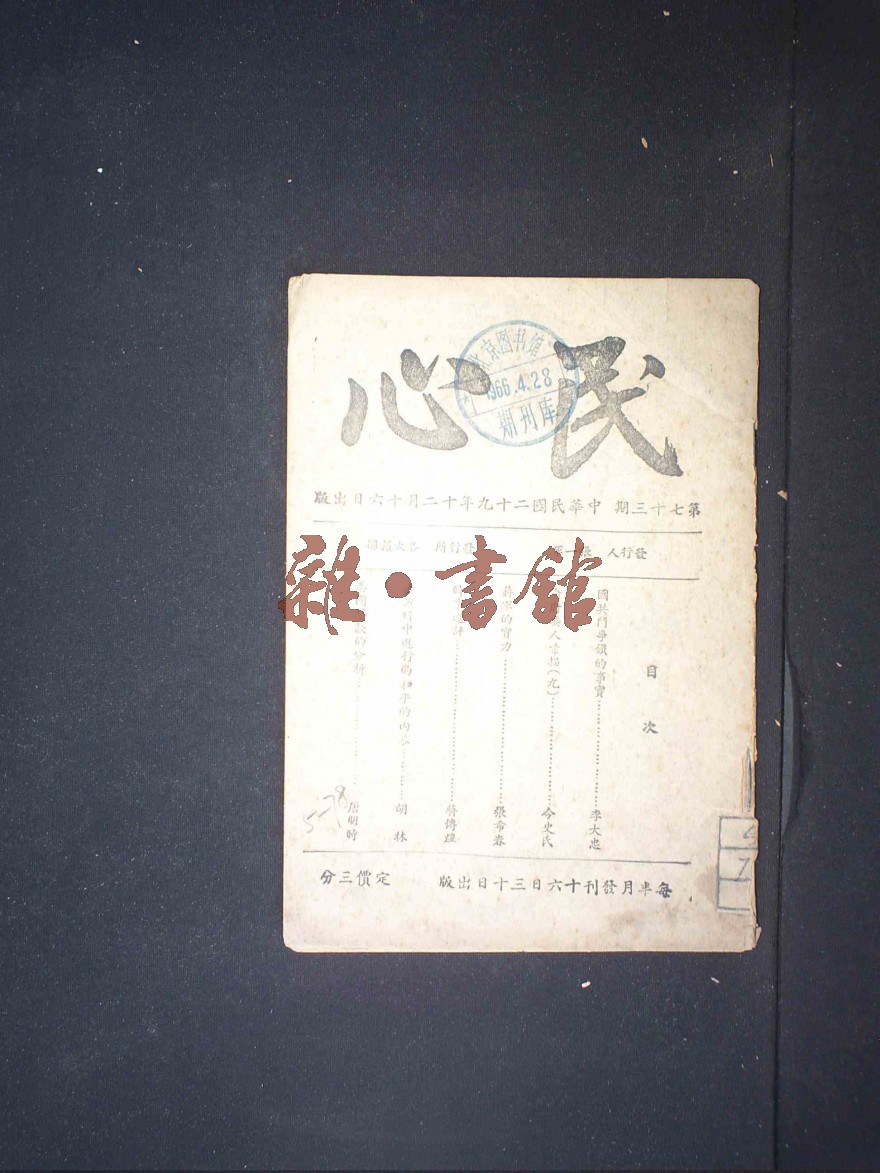 民心
北京图书馆
1966.4.28
期刊库
第七十三期 中華民國二十九年十二月十六日出版
發行人
發行所 各大報攤
雜·書館
目次
國共鬥爭鎖的事實……李大忠
人素描(九)……今史氏
蔣軍的實力……張希春
蔣傳煌
中進行的和平的內容……胡林
的分析……唐明時
5-78
每半月發刊十六日三十日出版 定價三分